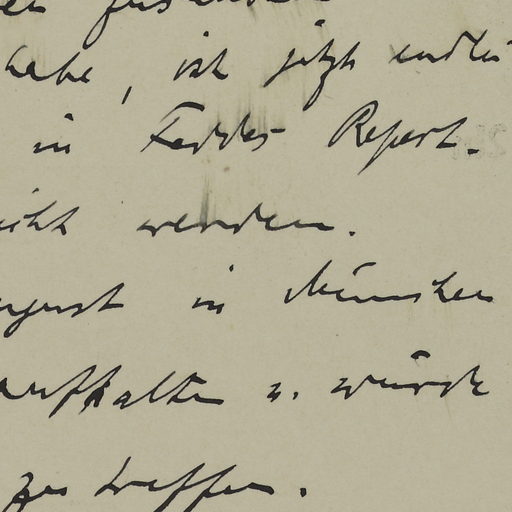 habe, ist jetzt endli
in Feddes Repert.
icht werden.
ugust in München
aufhalten u. würde
zu treffen.